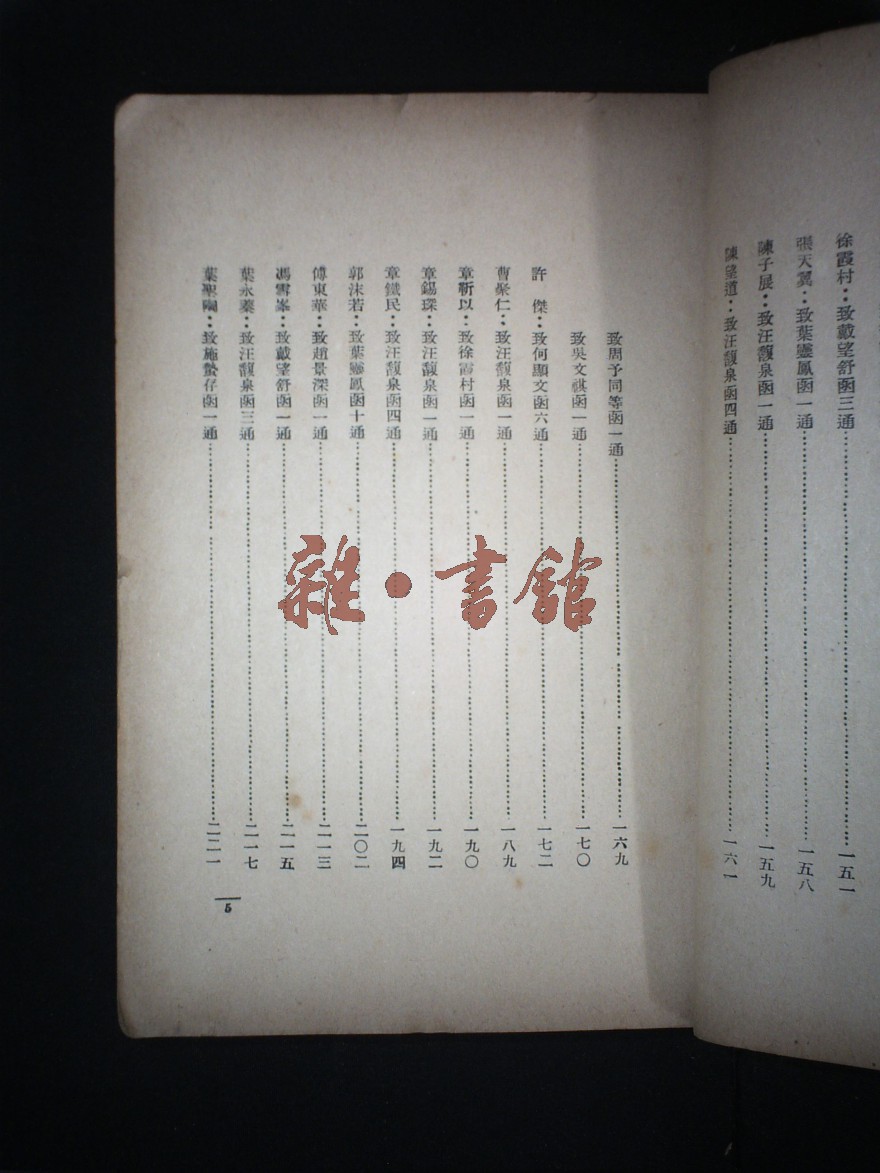 徐霞村：致戴望舒函三通……一五一
張天翼：致葉靈鳳函一通……一五八
陳子展：致汪馥泉函一通……一五九
陳望道：致汪馥泉函四通……一六一
致周予同等函一通……一六九
致吳文祺函一通……一七〇
許　傑：致何顯文函六通……一七二
曹聚仁：致汪馥泉函一通……一八九
章靳以：致徐霞村函一通……一九〇
章錫琛：致汪馥泉函一通……一九二
章鐵民：致汪馥泉函四通……一九四
郭沫若：致葉靈鳳函十通……二〇二
傅東華：致趙景深函一通……二一三
馮雪峯：致戴望舒函一通……二一五
葉永蓁：致汪馥泉函三通……二一七
葉聖陶：致施蟄存函一通……二二一
5
雜·書館